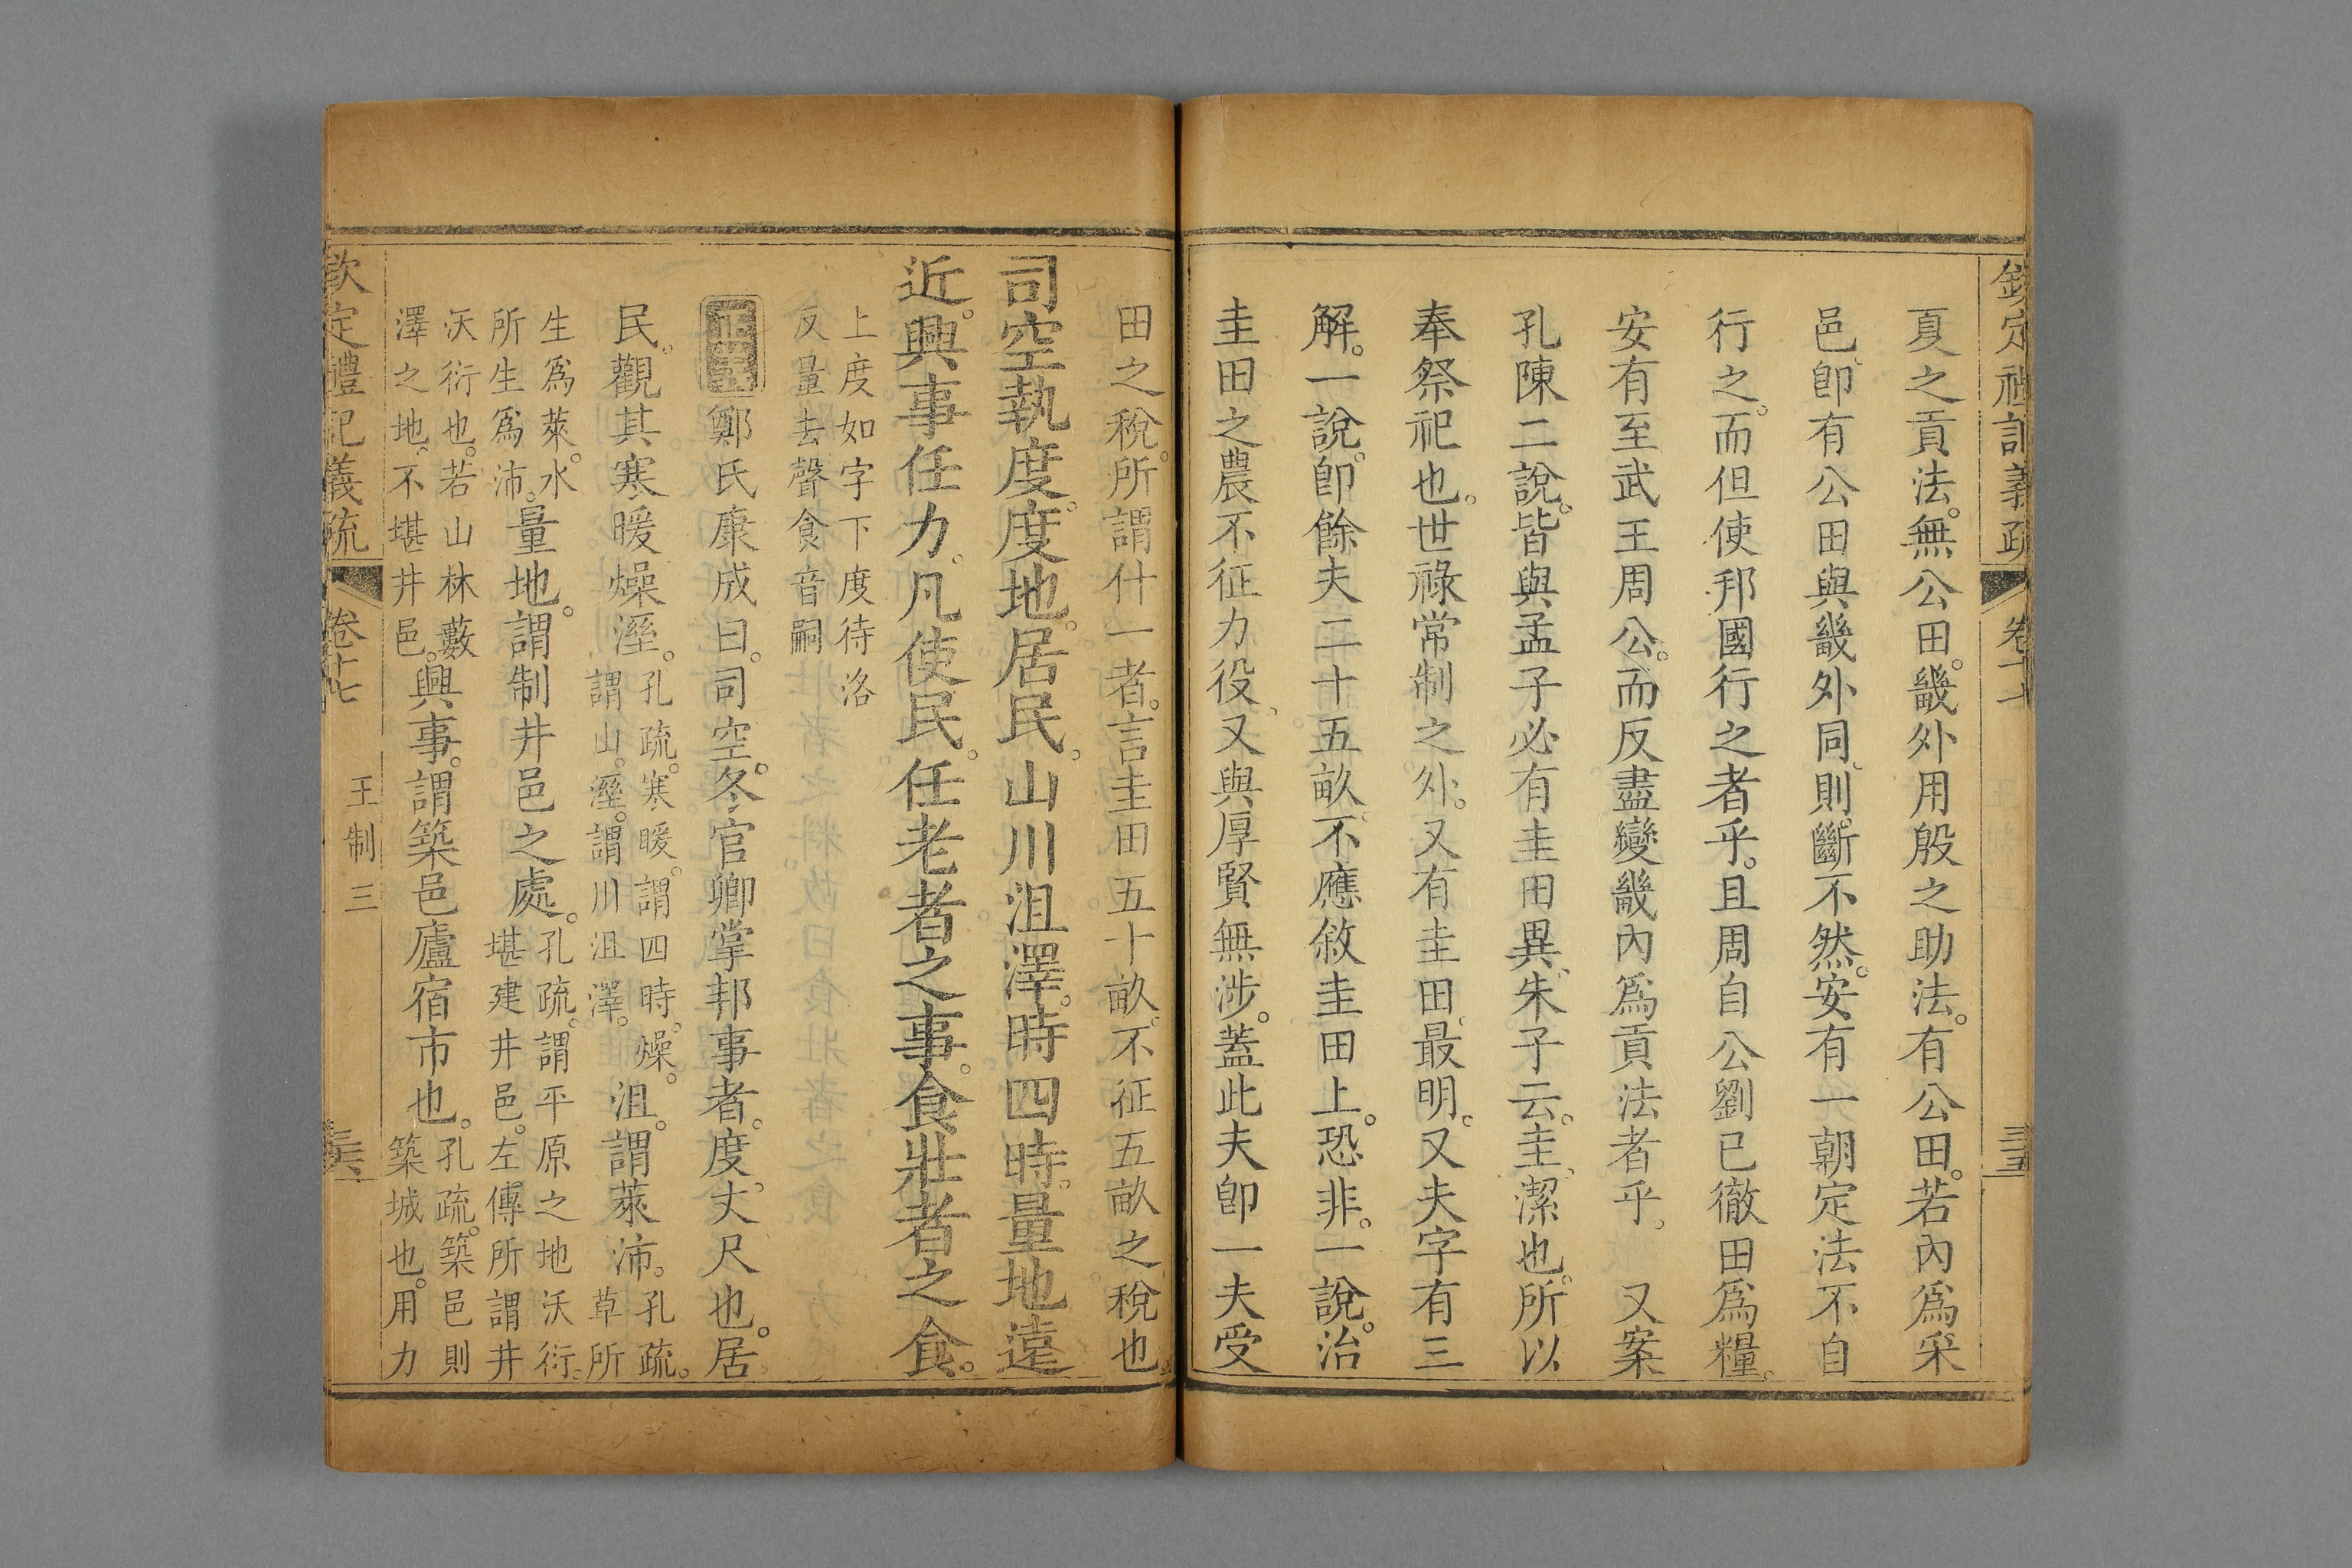 欽定禮記義疏 卷十七 三五
夏之貢法。無公田。畿外用殷之助法。有公田。若內爲采
邑、卽有公田與畿外同、則斷不然。安有一朝定法不自
行之。而但使邦國行之者乎。且周自公劉已徹田爲糧。
安有至武王周公。而反盡變畿內爲貢法者乎。 又案
孔陳二說。皆與孟子必有圭田異、朱子云。圭、潔也。所以
奉祭祀也。世祿常制之外。又有圭田、最明。又夫字有三
解。一說。卽餘夫二十五畝、不應敘圭田上。恐非。一說。治
圭田之農不征力役、又與厚賢無涉。蓋此夫卽一夫受
田之稅。所謂什一者。言圭田五十畝、不征五畝之稅也
司空執度。度地。居民、山川沮澤。時四時。量地遠
近。興事任力。凡使民。任老者之事。食壯者之食。
上度如字下度待洛
反量去聲食音嗣
正義鄭氏康成曰。司空。冬官卿掌邦事者。度、丈尺也。居
民、觀其寒暖燥溼。孔疏。寒暖。謂四時。燥。
謂山。溼。謂川沮澤。沮。謂萊沛。孔疏。草所
生爲萊。水
所生爲沛。量地。謂制井邑之處。孔疏。謂平原之地沃衍、
堪建井邑。左傳所謂井
沃衍也。若山林藪
澤之地、不堪井邑。興事。謂築邑廬宿市也。孔疏。築邑則
築城也。用力
欽定禮記義疏 卷十七 王制三 三六